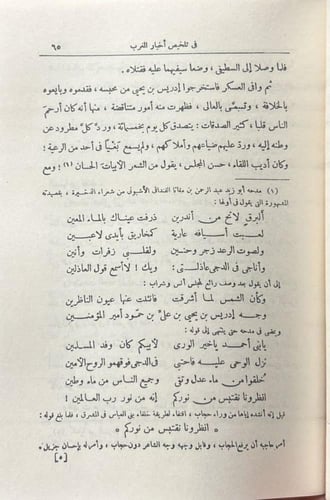 فى تلخيص أخبار المغرب ٦٥
فلما وصلا إلى السطيفى، وضعا سيفيهما عليه فقتلاه.
ثم وافى العسكر فاستخرجوا إدريس بن يحيى من محبسه، فقدموه وبايعوه
بالخلافة، وتسمى بالعالى، فظهرت منه أمور متناقضة، منها أنه كان أرحم
الناس قلبا، كثير الصدقات؛ يتصدق كل يوم بخمسمائة، ورد كل مطرود عن
وطنه إليه، ورد عليهم ضياعهم وأملاكهم، ولم يسمع بغيا فى أحد من الرعية؛
وكان أديب اللقاء، حسن المجلس، يقول من الشعر الأبيات الحسان (١)؛ ومع
(١) مدحه أبو زيد عبد الرحمن بن مقانا الفنداقى الأشبونى من شعراء الذخيرة، بقصيدته
المشهورة التى يقول فى أولها:
ألبرق لائح من أندرين ذرفت عيناك بالماء المعين
لعبت أسيافه عارية كمخاريق بأيدى لاعبين
ولصوت الرعد زجر وحنين ولقلبى زفرات وأنين
وأناجى فى الدجى عاذلتى: ويك! لا أسمع قول العاذلين
إلى أن يقول بعد وصف رائع لمجلس أنس وشراب:
وكأن الشمس لما أشرقت فانثنت عنها عيون الناظرين
وجه إدريس بن يحيى بن على بن حمود أمير المؤمنين
ويمضى فى مدحه حتى ينتهى إلى قوله:
يا بنى أحمد يا خير الورى لأبيكم كان وفد المسلمين
نزل الوحى عليه فاحتبى فى الدجى فوقهمو الروح الأمين
خلقوا من ماء عدل وتقى وجميع الناس من ماء وطين
انظرونا نقتبس من نوركم إنه من نور رب العالمين!
قيل إنه أنشده إياها من وراء حجاب، اقتفاء لطريقة خلفاء بنى العباس فى المشرق، فلما بلغ قوله:
* انظرونا نقتبس من نوركم *
أمر حاجبه أن يرفع الحجاب، وقابل وجهه وجه الشاعر دون حجاب، وأمر له بإحسان جزيل.
[٥]